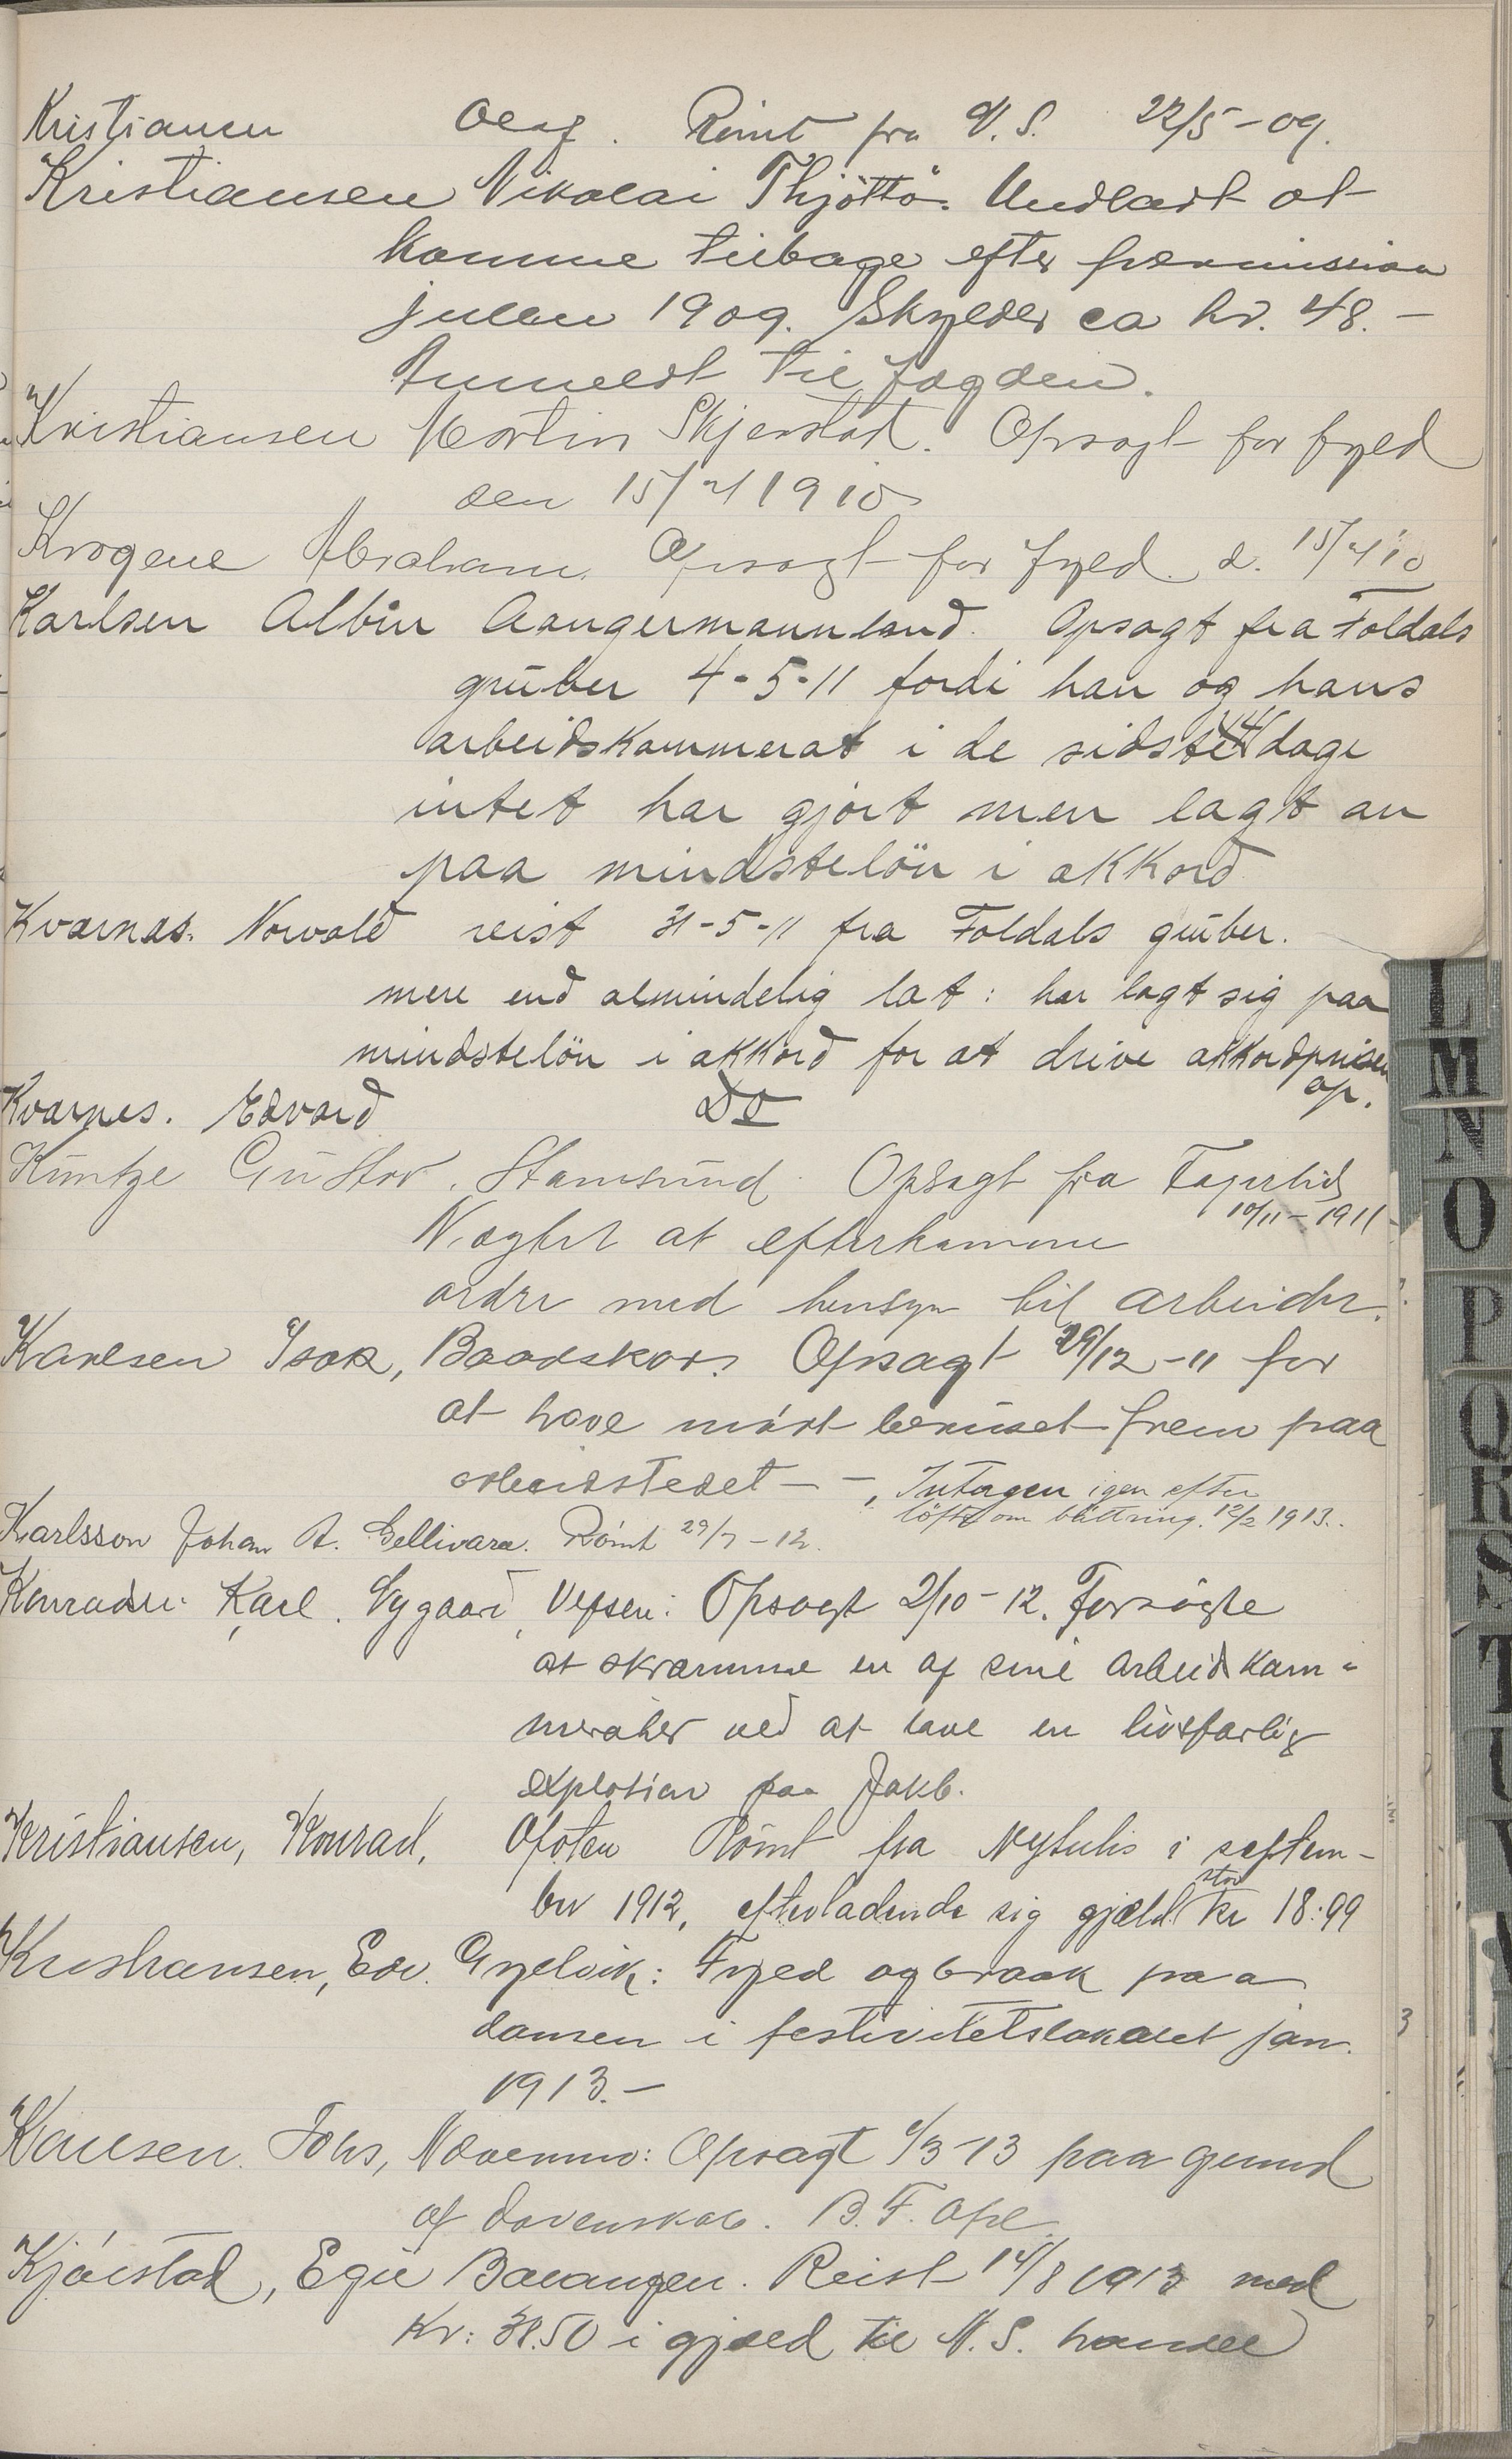 Kristiansen Olaf. Römt fra N. S. 22/5-09.
Kristiansen Nikolai Thjöttö. Undladt at
komme tilbage efter permission
julen 1909. Skylder ca kr. 48.-
Anmeldt til fogden.
Kristiansen Martin Skjerstad. Opsagt for fyld
den 15/4 1910
Krogene Abraham. Opsagt for fyld. d. 15/4 10
Karlsen Albin Aangermannland. Opsagt fra Foldals
gruber 4-5-11 fordi han og hans
arbeidskammerat i de sidste 14 dage
intet har gjort men lagt an
paa mindstelön i akkord
Kvarnes. Norvald reist 31-5-11 fra Foldals gruber.
mere end almindelig lat: har lagt sig paa
mindstelön i akkord for at drive akkordprisen
op.
Kvarnes. Edvard Do
Küntze Gustav. Stamsund. Opsagt fra Fagerlid
10/11-1911
Nægtet at efterkomme
ordre med hensyn til arbeider.
Karlsen Isak, Baadskar. Opsagt 29/12-11 for
at have mödt beruset frem paa
arbeidstedet - -, Intagen igen efter
löfte om bättring. 12/2 1913.
Karlsson Johan A. Gellivara. Römt 29/7-12.
Konradsen Karl. Nygaard, Vefsen: Opsagt 2/10-12. Forsögte
at skræmme en af sine arbeidskam-
merater ved at lave en livsfarlig
explosion paa Jakb.
Kristiansen, Konrad, Ofoten Römt fra Nysulis i septem-
ber 1912, efterladende sig gjæld stor kr 18:99
Kristiansen, Edv. Gryelvik: Fyld og braak paa
dansen i festivitetslokalet jan.
1913.-
Karlsen. Johs, Nævernes: Opsagt 1/3-13 paa grund
af dovenskab. B.F. Opl
Kjærstad, Egil Balangen. Reist 14/8 1913 med
Kr: 38.50 i gjæld til N. S. handel
L
M
N
O
P
Q
R
S
T
U
V